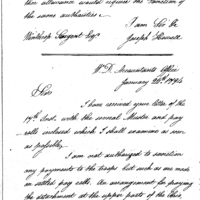 this allowance would require the sanction of
the same authorities.
I am Sir &c
Winthrop Sargent Esqr. Joseph Howell
W.D. Accountants Office
January 28th 1794
Sir
I have received your letter of the
17th Inst. with the several Muster and pay
rolls inclosed which I shall examine as soon
as possible.
I am not authorized to sanction
any payments to the troops but such as are made
on settled pay rolls. An arrangement for paying
the detachment at the upper parts of the Ohio